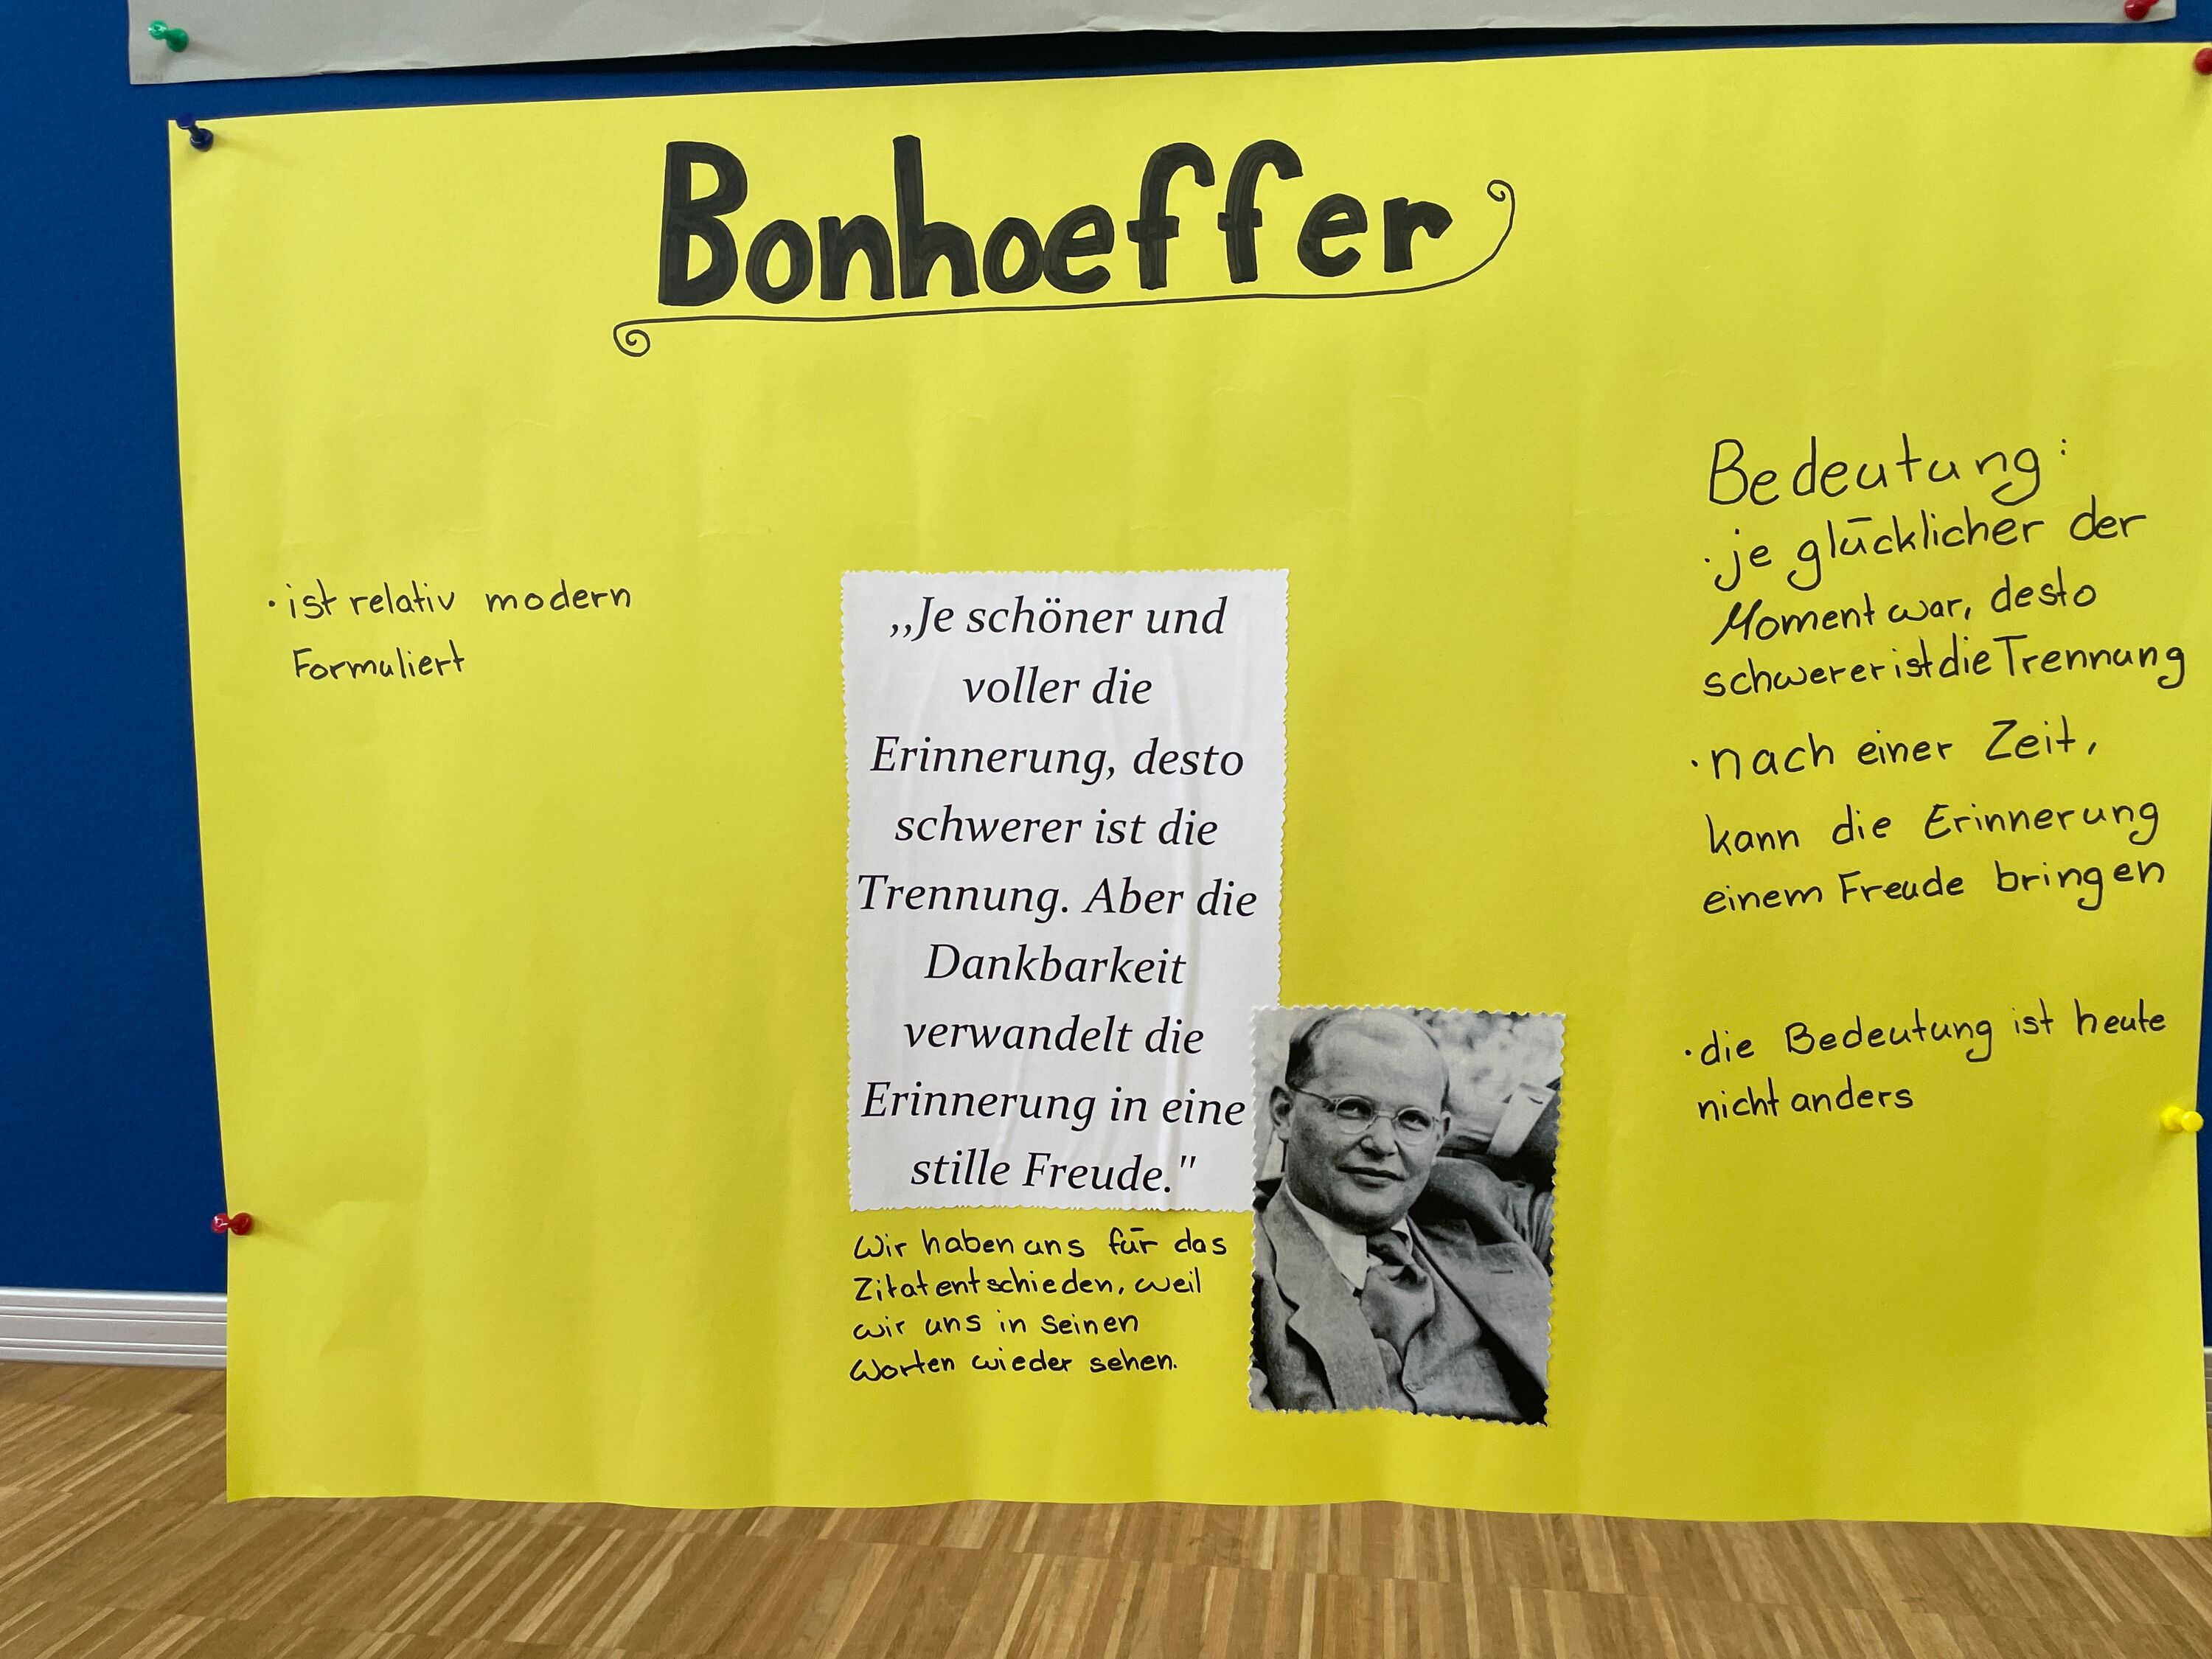 Bonhoeffer
· ist relativ modern
Formuliert
,,Je schöner und
voller die
Erinnerung, desto
schwerer ist die
Trennung. Aber die
Dankbarkeit
verwandelt die
Erinnerung in eine
stille Freude."
Wir haben uns für das
Zitat entschieden, weil
wir uns in seinen
Worten wieder sehen.
Bedeutung:
· je glücklicher der
Moment war, desto
schwerer ist die Trennung
· nach einer Zeit,
kann die Erinnerung
einem Freude bringen
· die Bedeutung ist heute
nicht anders